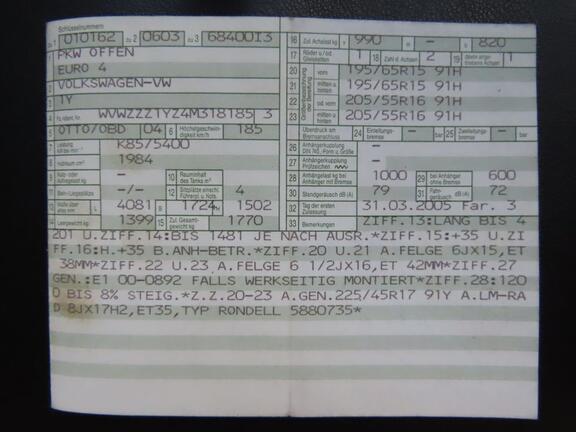 Schlüsselnummern
zu 1 010162 zu 2 0603 zu 3 6840013
1 PKW OFFEN
EURO 4
2 VOLKSWAGEN-VW
3 1Y
4 Fz.-Ident.-Nr. WVWZZZ1YZ4M318185 3
5 OTTO/OBD 04 6 Höchstgeschwindigkeit km/h 185
7 Leistung kW bei min⁻¹ K85/5400
8 Hubraum cm³ 1984
9 Nutz- oder Aufliegelast kg - 10 Rauminhalt des Tanks m³ -
11 Steh-/Liegeplätze -/- 12 Sitzplätze einschl. Führerpl. u. Nots. 4
13 Maße über alles mm L 4081 B 1724 H 1502
14 Leergewicht kg 1399 15 Zul. Gesamtgewicht kg 1770
16 Zul. Achslast kg v 990 m - h 820
17 Räder u./od. Gleisketten 1 18 Zahl d. Achsen 2 19 davon angetriebene Achsen 1
20 vorn 195/65R15 91H
21 mitten u. hinten 195/65R15 91H
22 od. vorn 205/55R16 91H
23 mitten u. hinten 205/55R16 91H
Größenbezeichnung der Bereifung
Überdruck am Bremsanschluss 24 Einleitungsbremse - bar 25 Zweileitungsbremse - bar
26 Anhängerkupplung DIN 740.., Form u. Größe -
27 Anhängerkupplung Prüfzeichen -
28 Anhängelast kg bei Anhänger mit Bremse 1000 29 bei Anhänger ohne Bremse 600
30 Standgeräusch dB (A) 79 31 Fahrgeräusch dB (A) 72
32 Tag der ersten Zulassung 31.03.2005 Far. 3
33 Bemerkungen ZIFF.13:LANG BIS 4
201 U.ZIFF.14:BIS 1481 JE NACH AUSR.*ZIFF.15:+35 U.ZI
FF.16:H.+35 B.ANH-BETR.*ZIFF.20 U.21 A.FELGE 6JX15,ET
38MM*ZIFF.22 U.23 A.FELGE 6 1/2JX16,ET 42MM*ZIFF.27
GEN.:E1 00-0892 FALLS WERKSEITIG MONTIERT*ZIFF.28:120
0 BIS 8% STEIG.*Z.Z.20-23 A.GEN.225/45R17 91Y A.LM-RA
D 8JX17H2,ET35,TYP RONDELL 5880735*